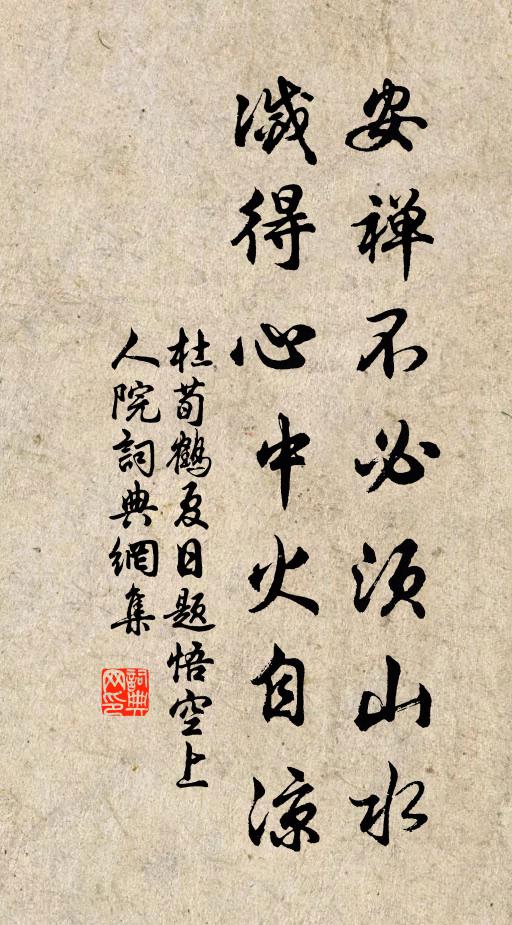 安禅不必须山水
滅得心中火自涼
杜荀鶴夏日題悟空上
人院詞典網集
詞典
网印